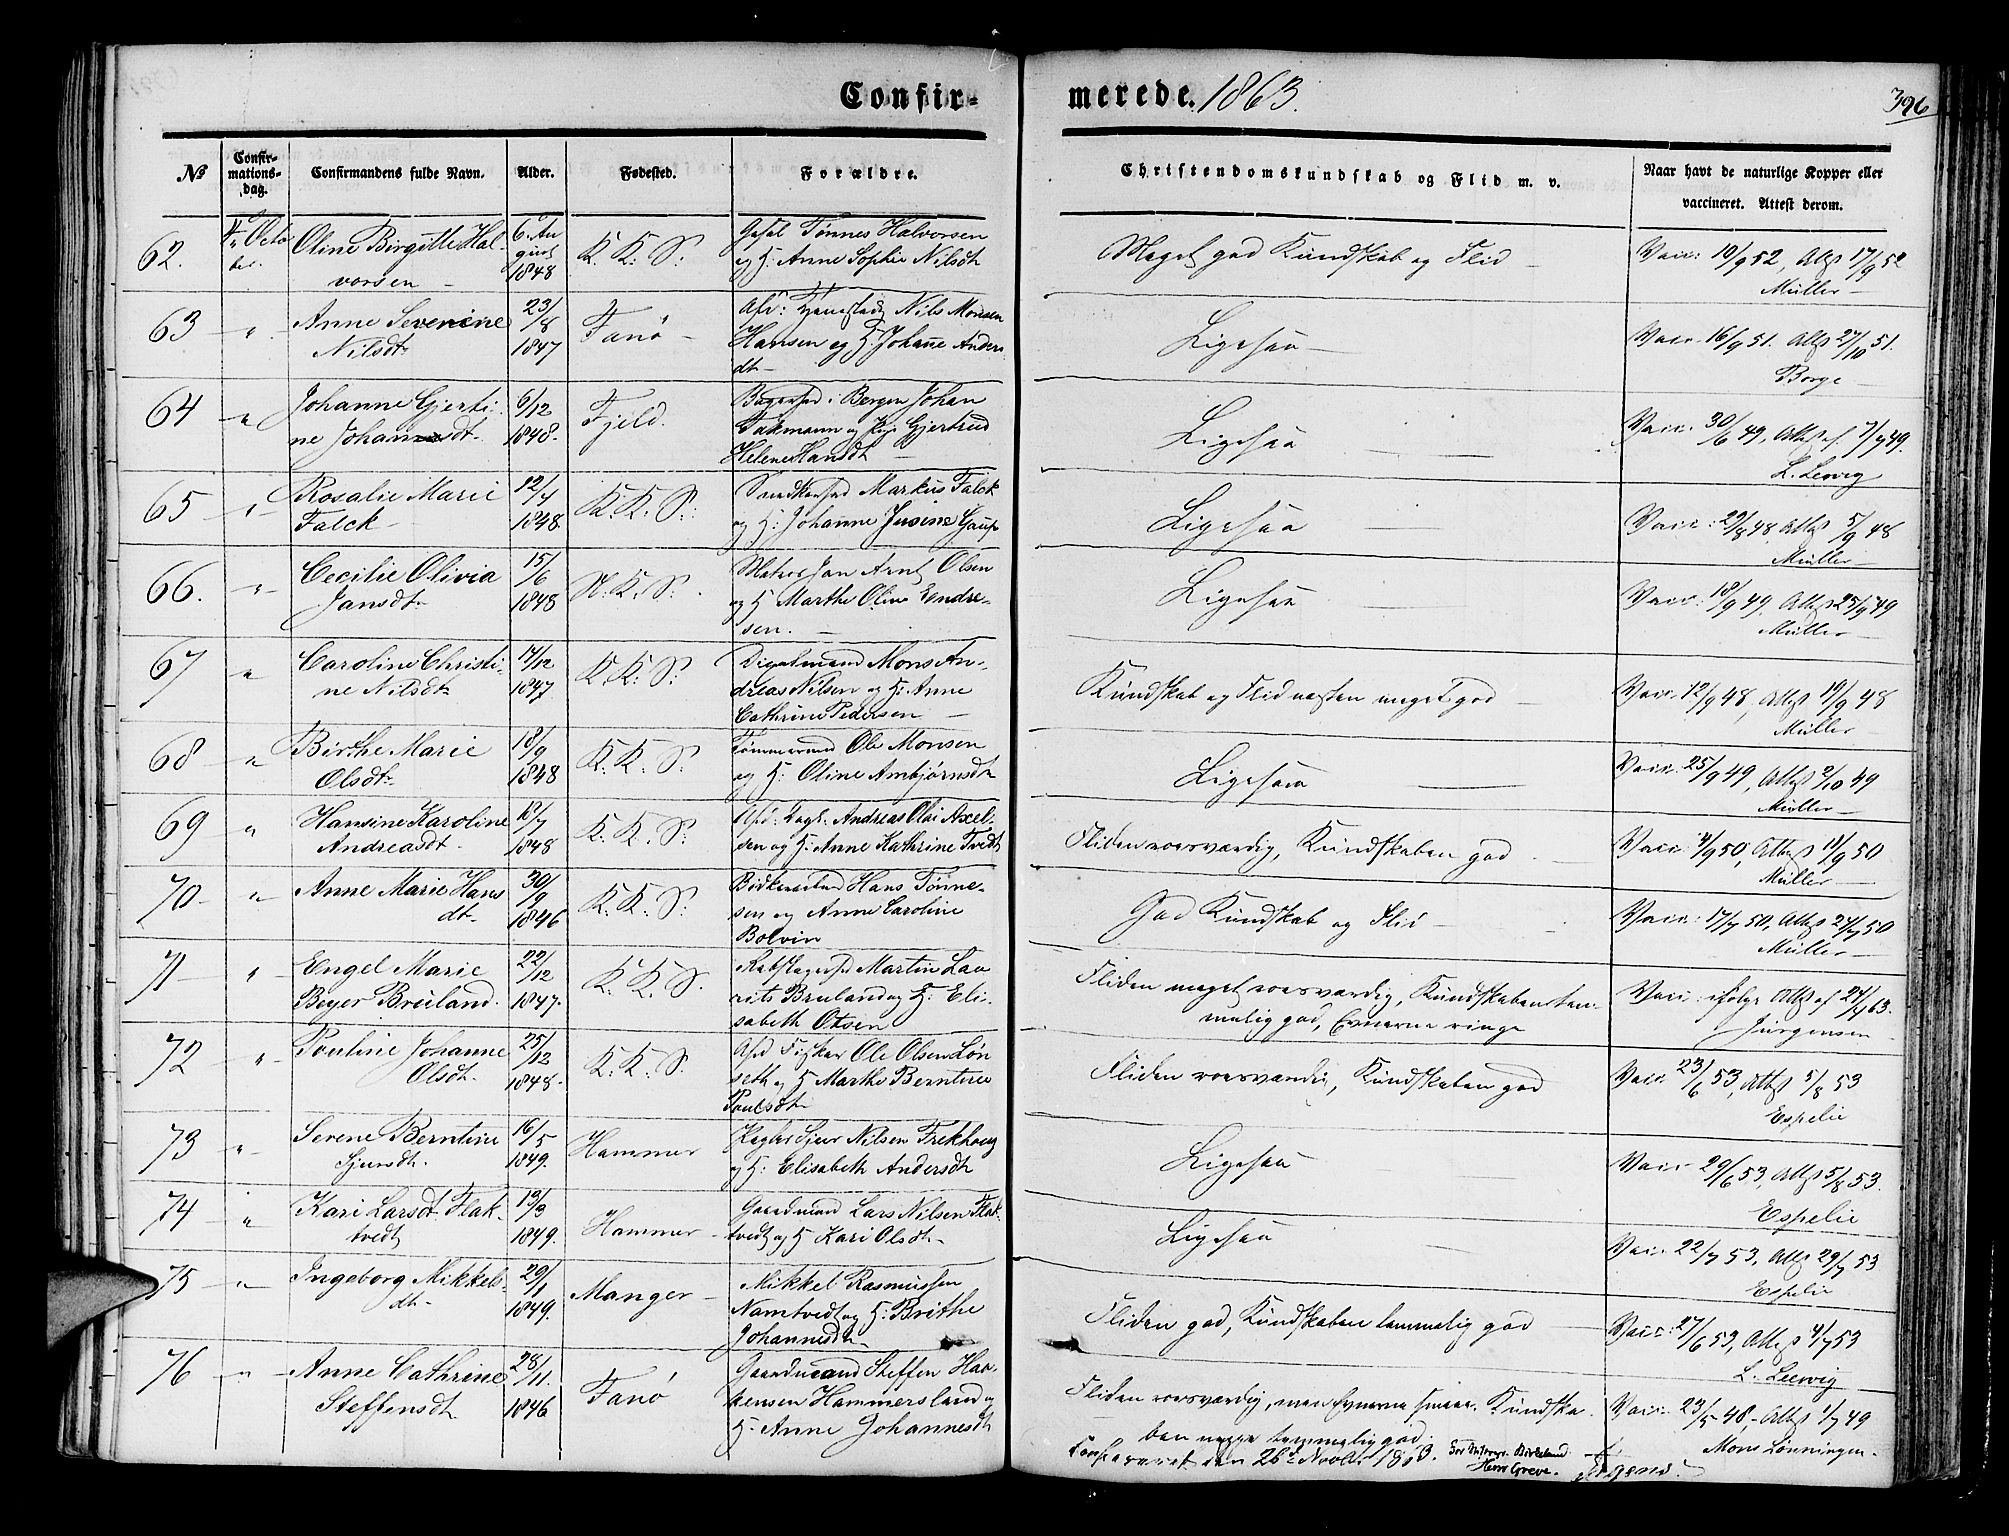 Confir- merede. 1863.
396
No
Confir-
mations-
dag.
Confirmandens fulde Navn.
Alder.
Fødested.
Forældre.
Christendomskundskab og Flid m. v.
Naar havt de naturlige Kopper eller
vaccineret. Attest derom.
62. Octo- Oline Birgitte Hal-
vorsen
6 Au
gust
1848
K. K. S.
Tønnes Halvorsen
og H: Anne Sophie Nilsdt
Meget god Kundskab og Flid
Vacc: 10/9 52, Att 17/9 52
Müller
63 " Anne Severine
Nilsdt
23/8
1847
Fanø
Nils Monsen
Hansen og H. Johanne Anders
dt
Ligesaa
Vacc. 16/9 51. Att 27/10 51.
Borge
64 " Johanne Gjerti-
ne Johansdt.
6/12
1848.
Fjeld.
i Bergen Johan
og Gjertrud
Helene Hansdt
Ligesaa
Vacc. 30/6 49, Att af 7/7 49.
65 " Rosalie Marie
Falck
12/4
1848
K. K. S.
Markus Falck
og H: Johanne
Ligesaa
Vacc: 29/8 48, Att 5/9 48
Müller
66. " Cecilie Olivia
Jansdt
15/6
1848
N. K. S.
Matros Jan Arnt Olsen
og H Marthe Oline Endre-
sen.
Ligesaa
Vacc: 18/9 49. Att 25/9 49
Müller
67 " Caroline Christi-
ne Nilsdt
14/12
1847.
K. K. S.
Mons An-
dreas Nilsen og H: Anne
Cathrine Pedersen
Kundskab og Flid næsten meget god
Vacc. 12/9 48, Att 19/9 48
Müller
68 " Birthe Marie
Olsdt
18/9
1848
K. K. S.
Tømmermand Ole Monsen
og H: Oline Ambjørnsdt
Ligesaa
Vacc. 25/9 49, Att 2/10 49
Müller
69 " Hansine Karoline
Andreasdt.
18/7
1848
K. K. S.
Andreas Olai Axel-
sen og H: Anne Kathrine Tvedt
Fliden roesværdig, Kundskaben god
Vacc: 4/9 50, Att 11/9 50
Müller
70 " Anne Marie Hans
dt
30/9
1846
K. K. S.
Hans Tønne-
sen og Anne Caroline
Bolvin
God Kundskab og Flid
Vacc: 17/7 50, Att 24/7 50
Müller
71 " Engel Marie
Beyer Bruland.
22/12
1847.
K. K. S.
Martin Lau
rits Bruland og H. Eli-
sabeth Otsen
Fliden meget roesværdig, Kundskaben tem-
melig god, Evnerne ringe
Vacc: ifølge Att af 24/4 63.
Jürgensen
72 " Pouline Johanne
Olsdt.
25/12
1848.
K. K. S.
Afd Fisker Ole Olsen Løn
seth og H Marthe Berntine
Poulsdt
Fliden roesværdig, Kundskaben god
Vacc 23/6 53, Att 5/8 53
Espelie
73 " Serene Berntine
Sjursdt.
16/5
1849.
Hammer
Sjur Nilsen Frekhoug
og H: Elisabeth Andersdt
Ligesaa
Vacc 29/6 53, Att 5/8 53.
Espelie
74 " Kari Larsdt Flak-
tvedt
13/3
1849.
Hammer
Gaardmand Lars Nilsen Flak-
tvedt og H Kari Olsdt
Ligesaa
Vacc. 22/7 53, Att 29/7 53
Espelie
75 " Ingeborg Mikkels
dt
29/1
1849.
Manger
Mikkel Rasmussen
Namtvedt og H: Brithe
Johannesdt
Fliden god, Kundskaben temmelig god
Vacc: 27/6 53, Att 4/7 53
76 " Anne Cathrine
Steffensdt
28/11.
1846
Fanø
Gaardmand Steffen Haa-
kensen Hammersland og
H. Anne Johannesdt
Fliden roesværdig, men Evnerne smaa. Kundska-
ben neppe temmelig god.
Vacc. 23/5 48, Att 1/7 49
Mons Lønningen.
den 26 Novbr 1863.